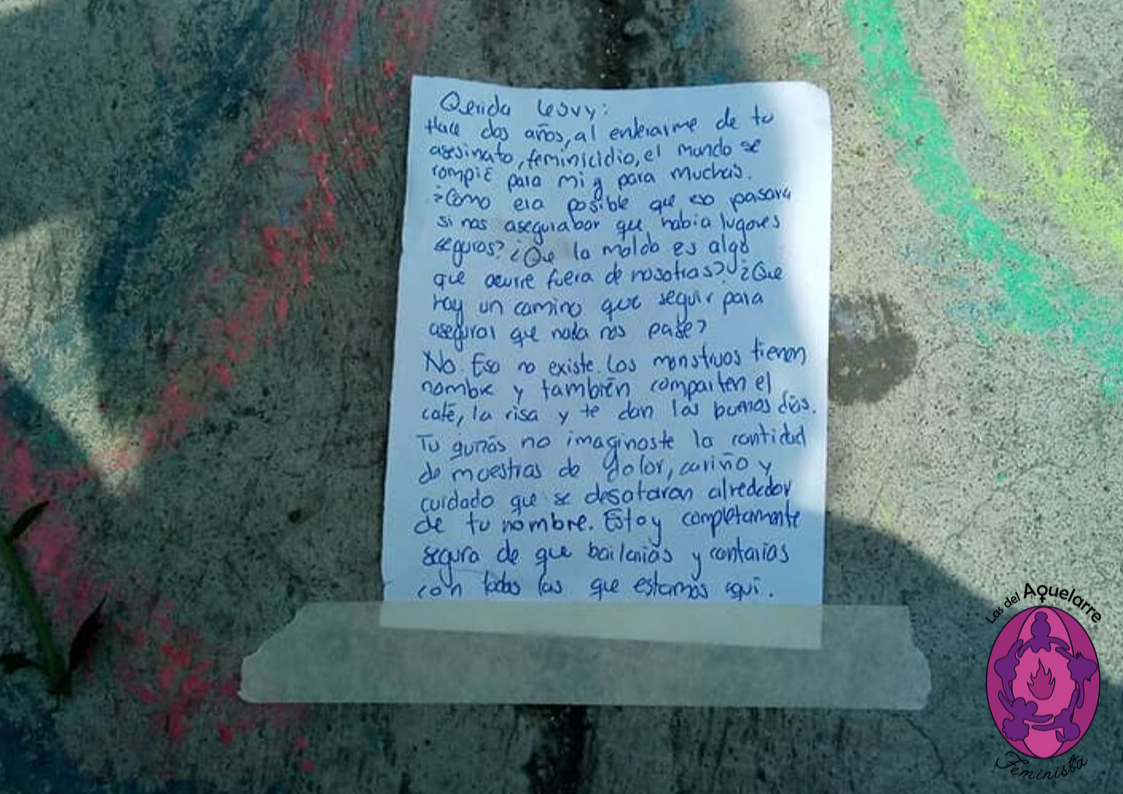 Querida Lesvy:
Hace dos años, al enterarme de tu
asesinato, feminicidio, el mundo se
rompió para mi y para muchas.
¿Cómo era posible que eso pasara
si nos aseguraban que había lugares
seguros? ¿Que la maldad es algo
que ocurre fuera de nosotras? ¿Que
hay un camino que seguir para
asegurar que nada nos pase?
No. Eso no existe. Los monstruos tienen
nombre y también comparten el
café, la risa y te dan los buenos días.
Tu quizás no imaginaste la cantidad
de muestras de dolor, cariño y
cuidado que se desataran alrededor
de tu nombre. Estoy completamente
segura de que bailarías y cantarías
con todas las que estamos aquí.
Las del Aquelarre
Feminista